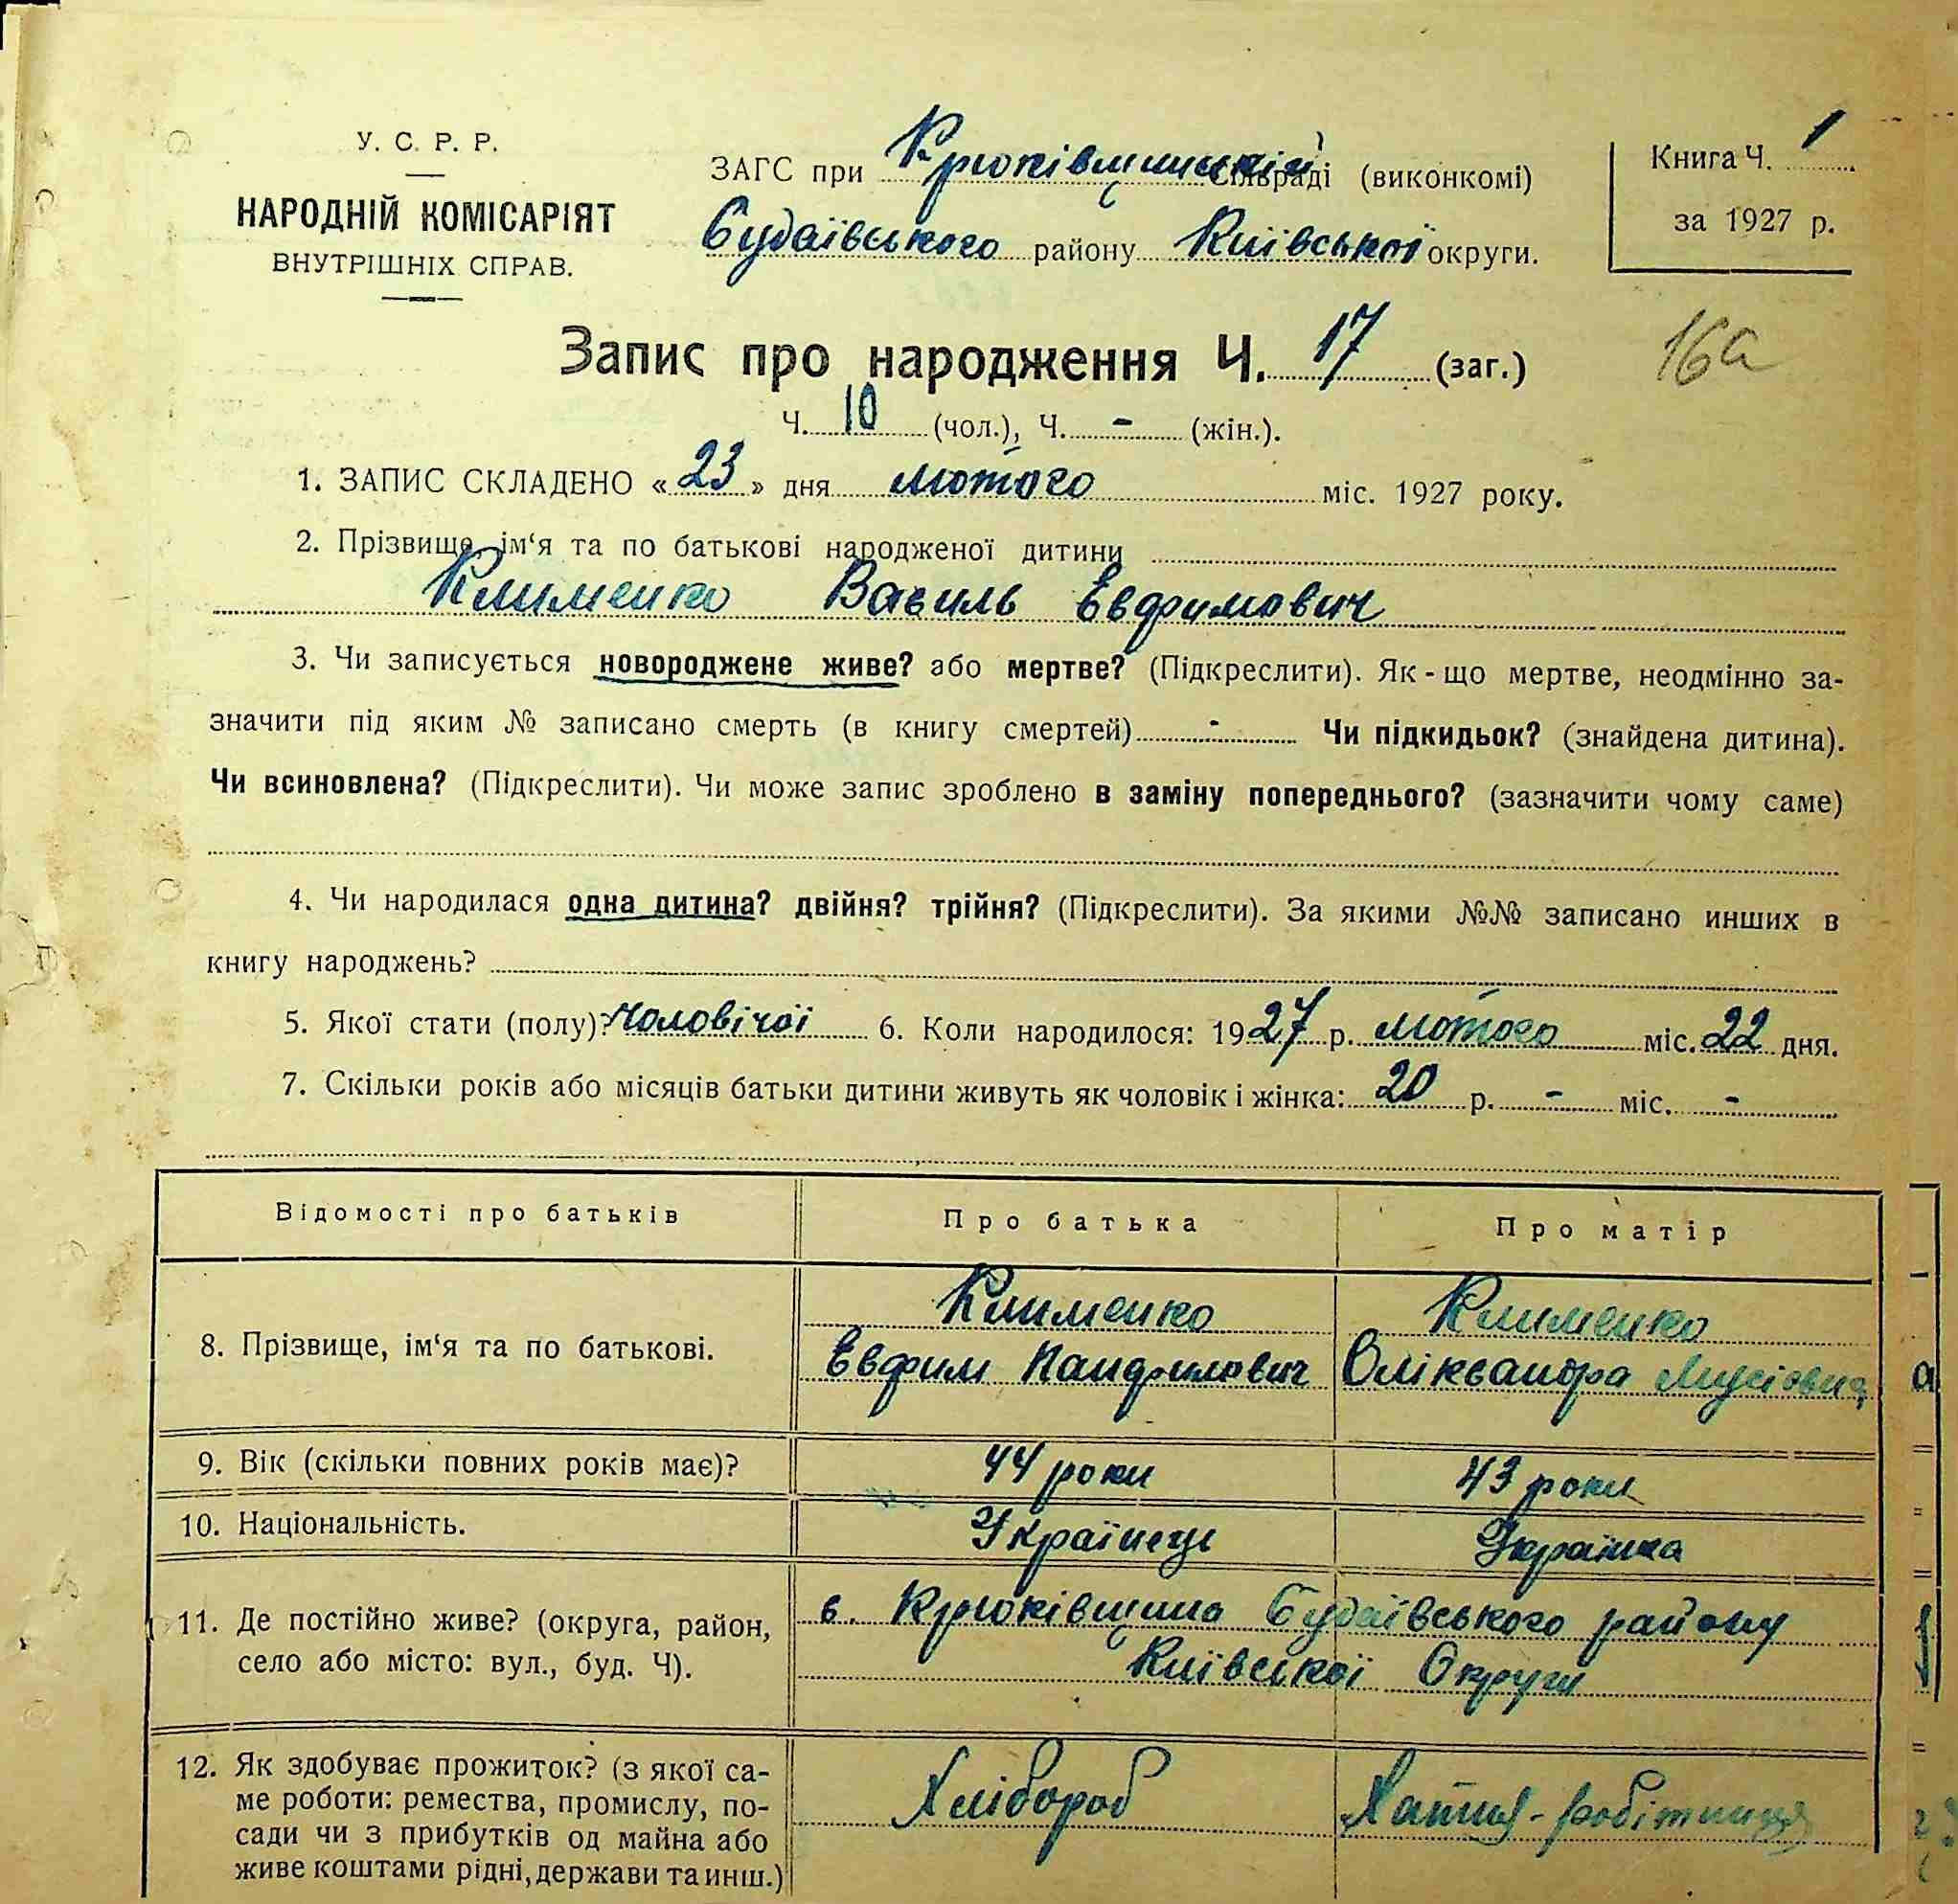 У. С. Р. Р.
НАРОДНІЙ КОМІСАРІЯТ
ВНУТРІШНІХ СПРАВ.
ЗАГС при Крюківщинській сільраді (виконкомі)
Будаївського району Київської округи.
Книга Ч. 1
за 1927 р.
16а
Запис про народження Ч. 17 (заг.)
Ч. 10 (чол.), Ч. - (жін.).
1. ЗАПИС СКЛАДЕНО «23» дня лютого міс. 1927 року.
2. Прізвище, ім‘я та по батькові народженої дитини
Клименко Василь Евфимович
3. Чи записується новороджене живе? або мертве? (Підкреслити). Як-що мертве, неодмінно за-
значити під яким № записано смерть (в книгу смертей) - Чи підкидьок? (знайдена дитина).
Чи всиновлена? (Підкреслити). Чи може запис зроблено в заміну попереднього? (зазначити чому саме)
4. Чи народилася одна дитина? двійня? трійня? (Підкреслити). За якими №№ записано инших в
книгу народжень?
5. Якої стати (полу)? Чоловічої 6. Коли народилося: 1927 р. лютого міс. 22 дня.
7. Скільки років або місяців батьки дитини живуть як чоловік і жінка: 20 р. - міс. -
Відомості про батьків Про батька Про матір
8. Прізвище, ім‘я та по батькові.
Клименко
Евфим Панфилович
Клименко
Оліксандра Мусіовна
9. Вік (скільки повних років має)? 44 роки 43 роки
10. Національність. Українець Українка
11. Де постійно живе? (округа, район,
село або місто: вул., буд. Ч).
с. Крюківщина Будаївського району
Київської Округи
12. Як здобуває прожиток? (з якої са-
ме роботи: ремества, промислу, по-
сади чи з прибутків од майна або
живе коштами рідні, держави та инш.)
Хлібороб
Хатня-робітниця